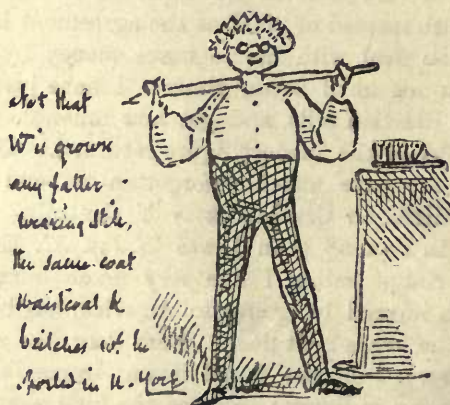 Not that
W is grown
any fatter
wearing still,
the same coat
waistcoat &
britches wh. he
sported in N. York